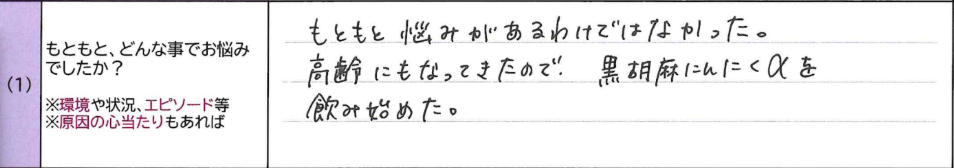 (1)
もともと、どんな事でお悩み
でしたか？
※環境や状況、エピソード等
※原因の心当たりもあれば
もともと悩みがあるわけではなかった。
高齢にもなってきたので、黒胡麻にんにくαを
飲み始めた。